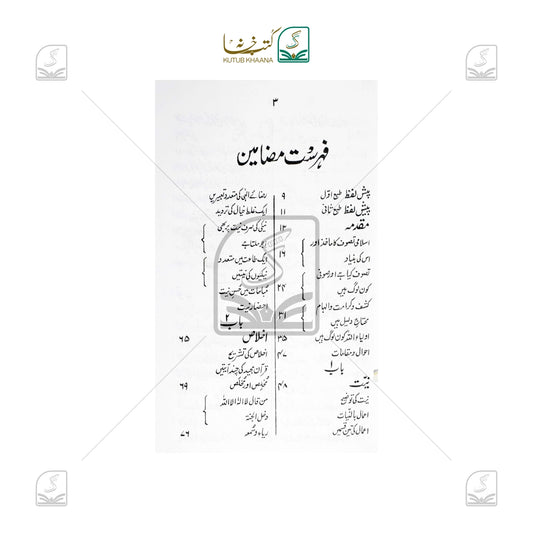 کتب خانہ
KUTUB KHAANA
۳
فہرست مضامین
پیش لفظ طبع اوّل ۹
پیش لفظ طبع ثانی ۱۱
مقدمہ ۱۳
اسلامی تصوف کا ماخذ اور
اس کی بنیاد ۱۶
تصوف کیا ہے اور صوفی
کون لوگ ہیں ۲۴
کشف و کرامت والہام
محتاجِ دلیل ہیں ۳۱
اولیاء اللہ کون لوگ ہیں ۳۵
احوال و مقامات ۴۷
باب ۱
نیّت ۴۸
نیت کی توضیح
اعمال بالنیات
اعمال کی تین قسمیں
رضائے الٰہی کی متعدد تعبیریں
ایک غلط خیال کی تردید
نیکی کی صرف نیت پر بھی
اجر ملتا ہے
ایک طاعت میں متعدد
نیکیوں کی نیتیں
مباحات میں حسنِ نیت
احضارِ نیت
باب ۲
اخلاص ۶۵
اخلاص کی تشریح
قرآن مجید کی چند آیتیں
مُخلِص اور مُخلَص ۶۹
من قال لا الٰہ الا اللہ
دخل الجنۃ
ریاء و سُمعہ ۷۶